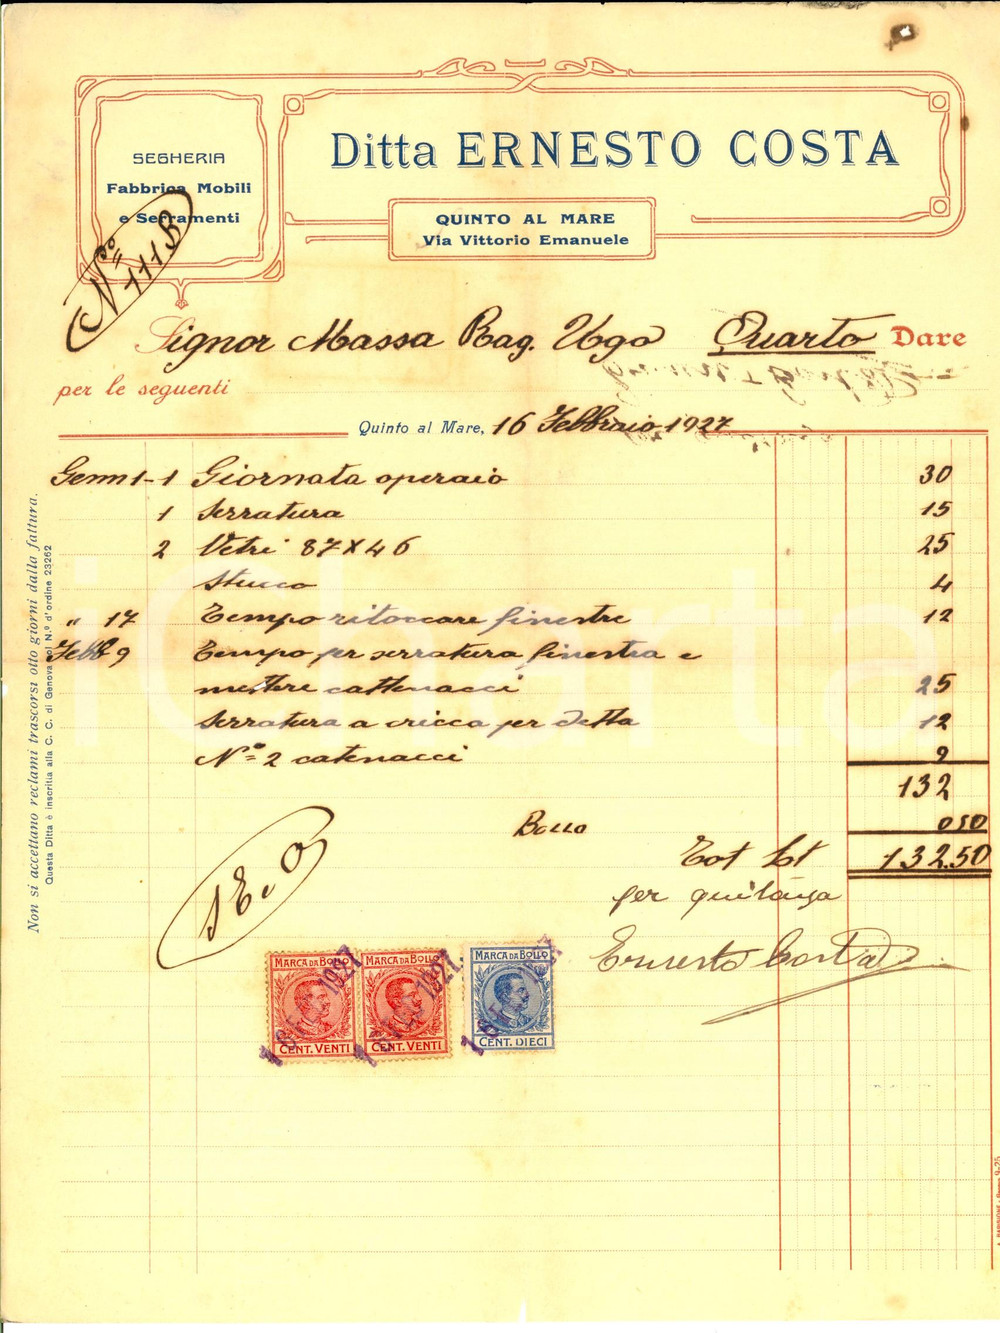 SEGHERIA
Fabbrica Mobili
e Serramenti
Ditta ERNESTO COSTA
QUINTO AL MARE
Via Vittorio Emanuele
N.º 111 B
Signor Massa Rag. Ugo Quarto Dare
per le seguenti
Quinto al Mare, 16 Febbraio 1927
Genn 1-1 Giornata operaio 30
1 Serratura 15
2 Vetri 87 x 46 25
Stucco 4
" 17 Tempo ritoccare finestre 12
Febb 9 Tempo per serratura finestra e
mettere cattenacci 25
Serratura a cricca per detta 12
Nº = 2 catenacci 9
132
Bollo 050
Tot Lt 132.50
per quitanza
Ernesto Costa
S. E. & O
MARCA DA BOLLO
CENT. VENTI
MARCA DA BOLLO
CENT. VENTI
MARCA DA BOLLO
CENT. DIECI
1927
1927
Non si accettano reclami trascorsi otto giorni dalla fattura.
Questa Ditta è inscritta alla C. C. di Genova col N.º d'ordine 23262
iCharta